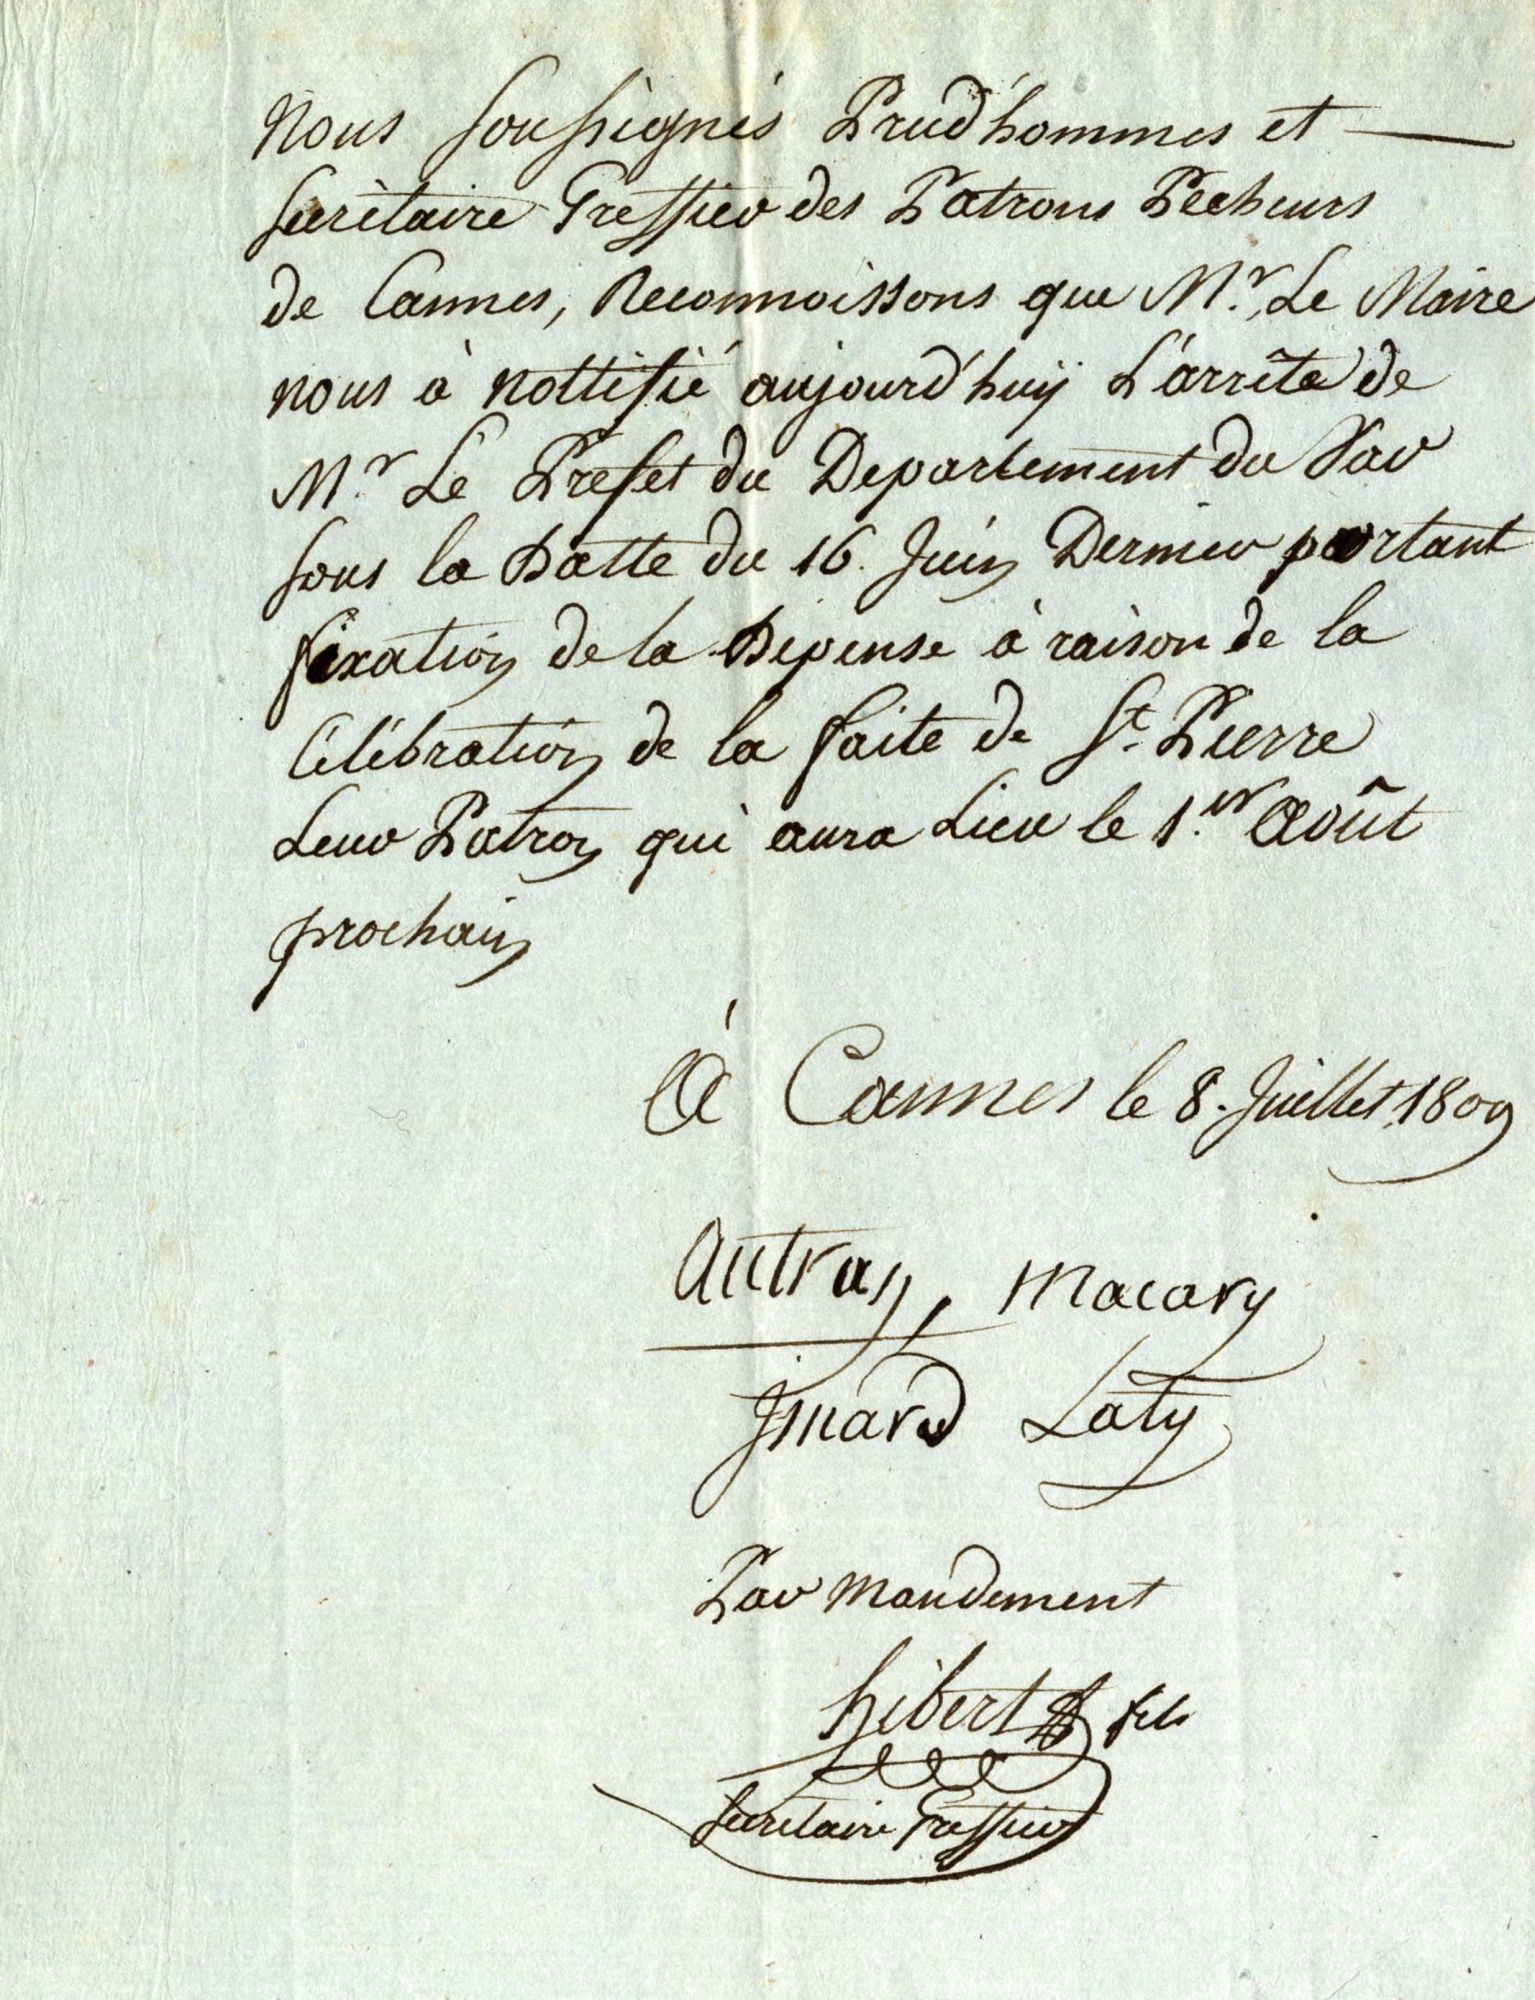 Nous soussignés Prud'hommes et
secrétaire Greffier des Patrons Pecheurs
de Cannes, Reconnoissons que Mr. Le Maire
nous à nottifié aujourd'huy L'arrêté de
Mr. Le Prefet du Departement du Var
sous la Datte du 16. Juin Dernier portant
fixation de la Dépense à raison de la
Célébration de la faite de St. Pierre
Leur Patron qui aura Lieu le 1.er Août
prochain
À Cannes le 8. Juillet 1809
Autran, Macary
Jsnard Laty
Par Mandement
hibert fils
secrétaire Greffier